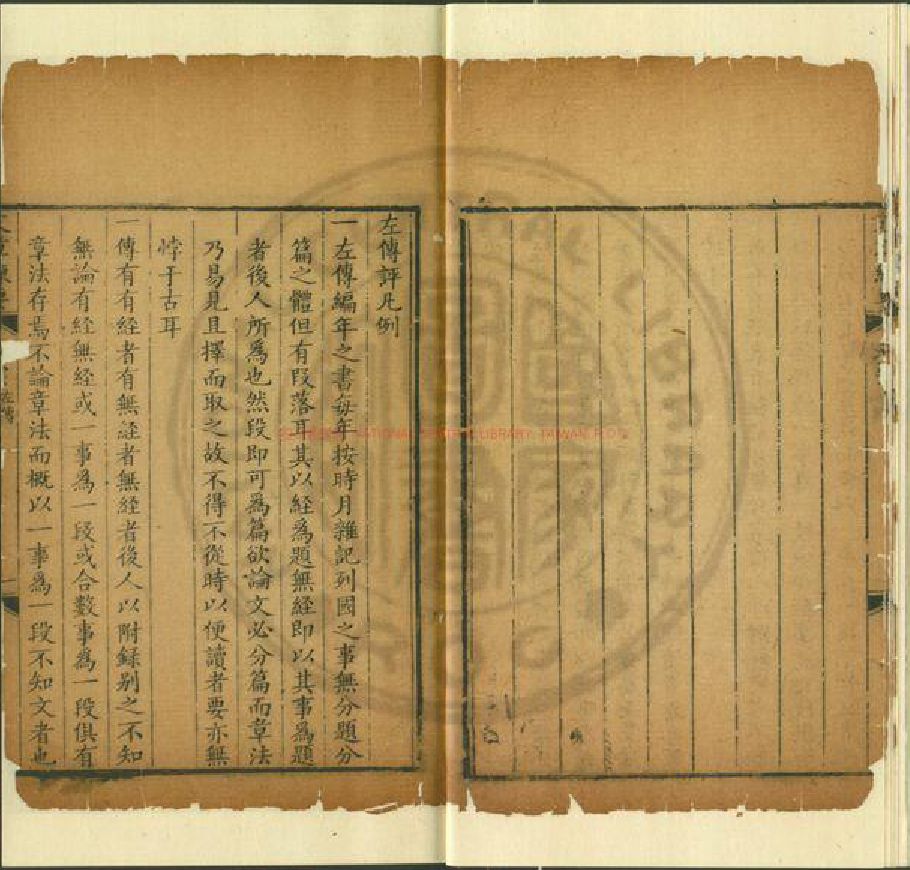 左傳評凡例
一左傳編年之書每年按時月雜記列國之事無分題分
篇之體但有段落耳其以經為題無經即以其事為題
者後人所為也然段即可為篇欲論文必分篇而章法
乃易見且擇而取之故不得不從時以便讀者要亦無
悖于古耳
一傳有有經者有無經者無經者後人以附錄别之不知
無論有經無經或一事為一段或合數事為一段俱有
章法存焉不論章法而概以一事為一段不知文者也
左傳
NATIONAL CENTRAL LIBRARY, TAIWAN, R.O.C